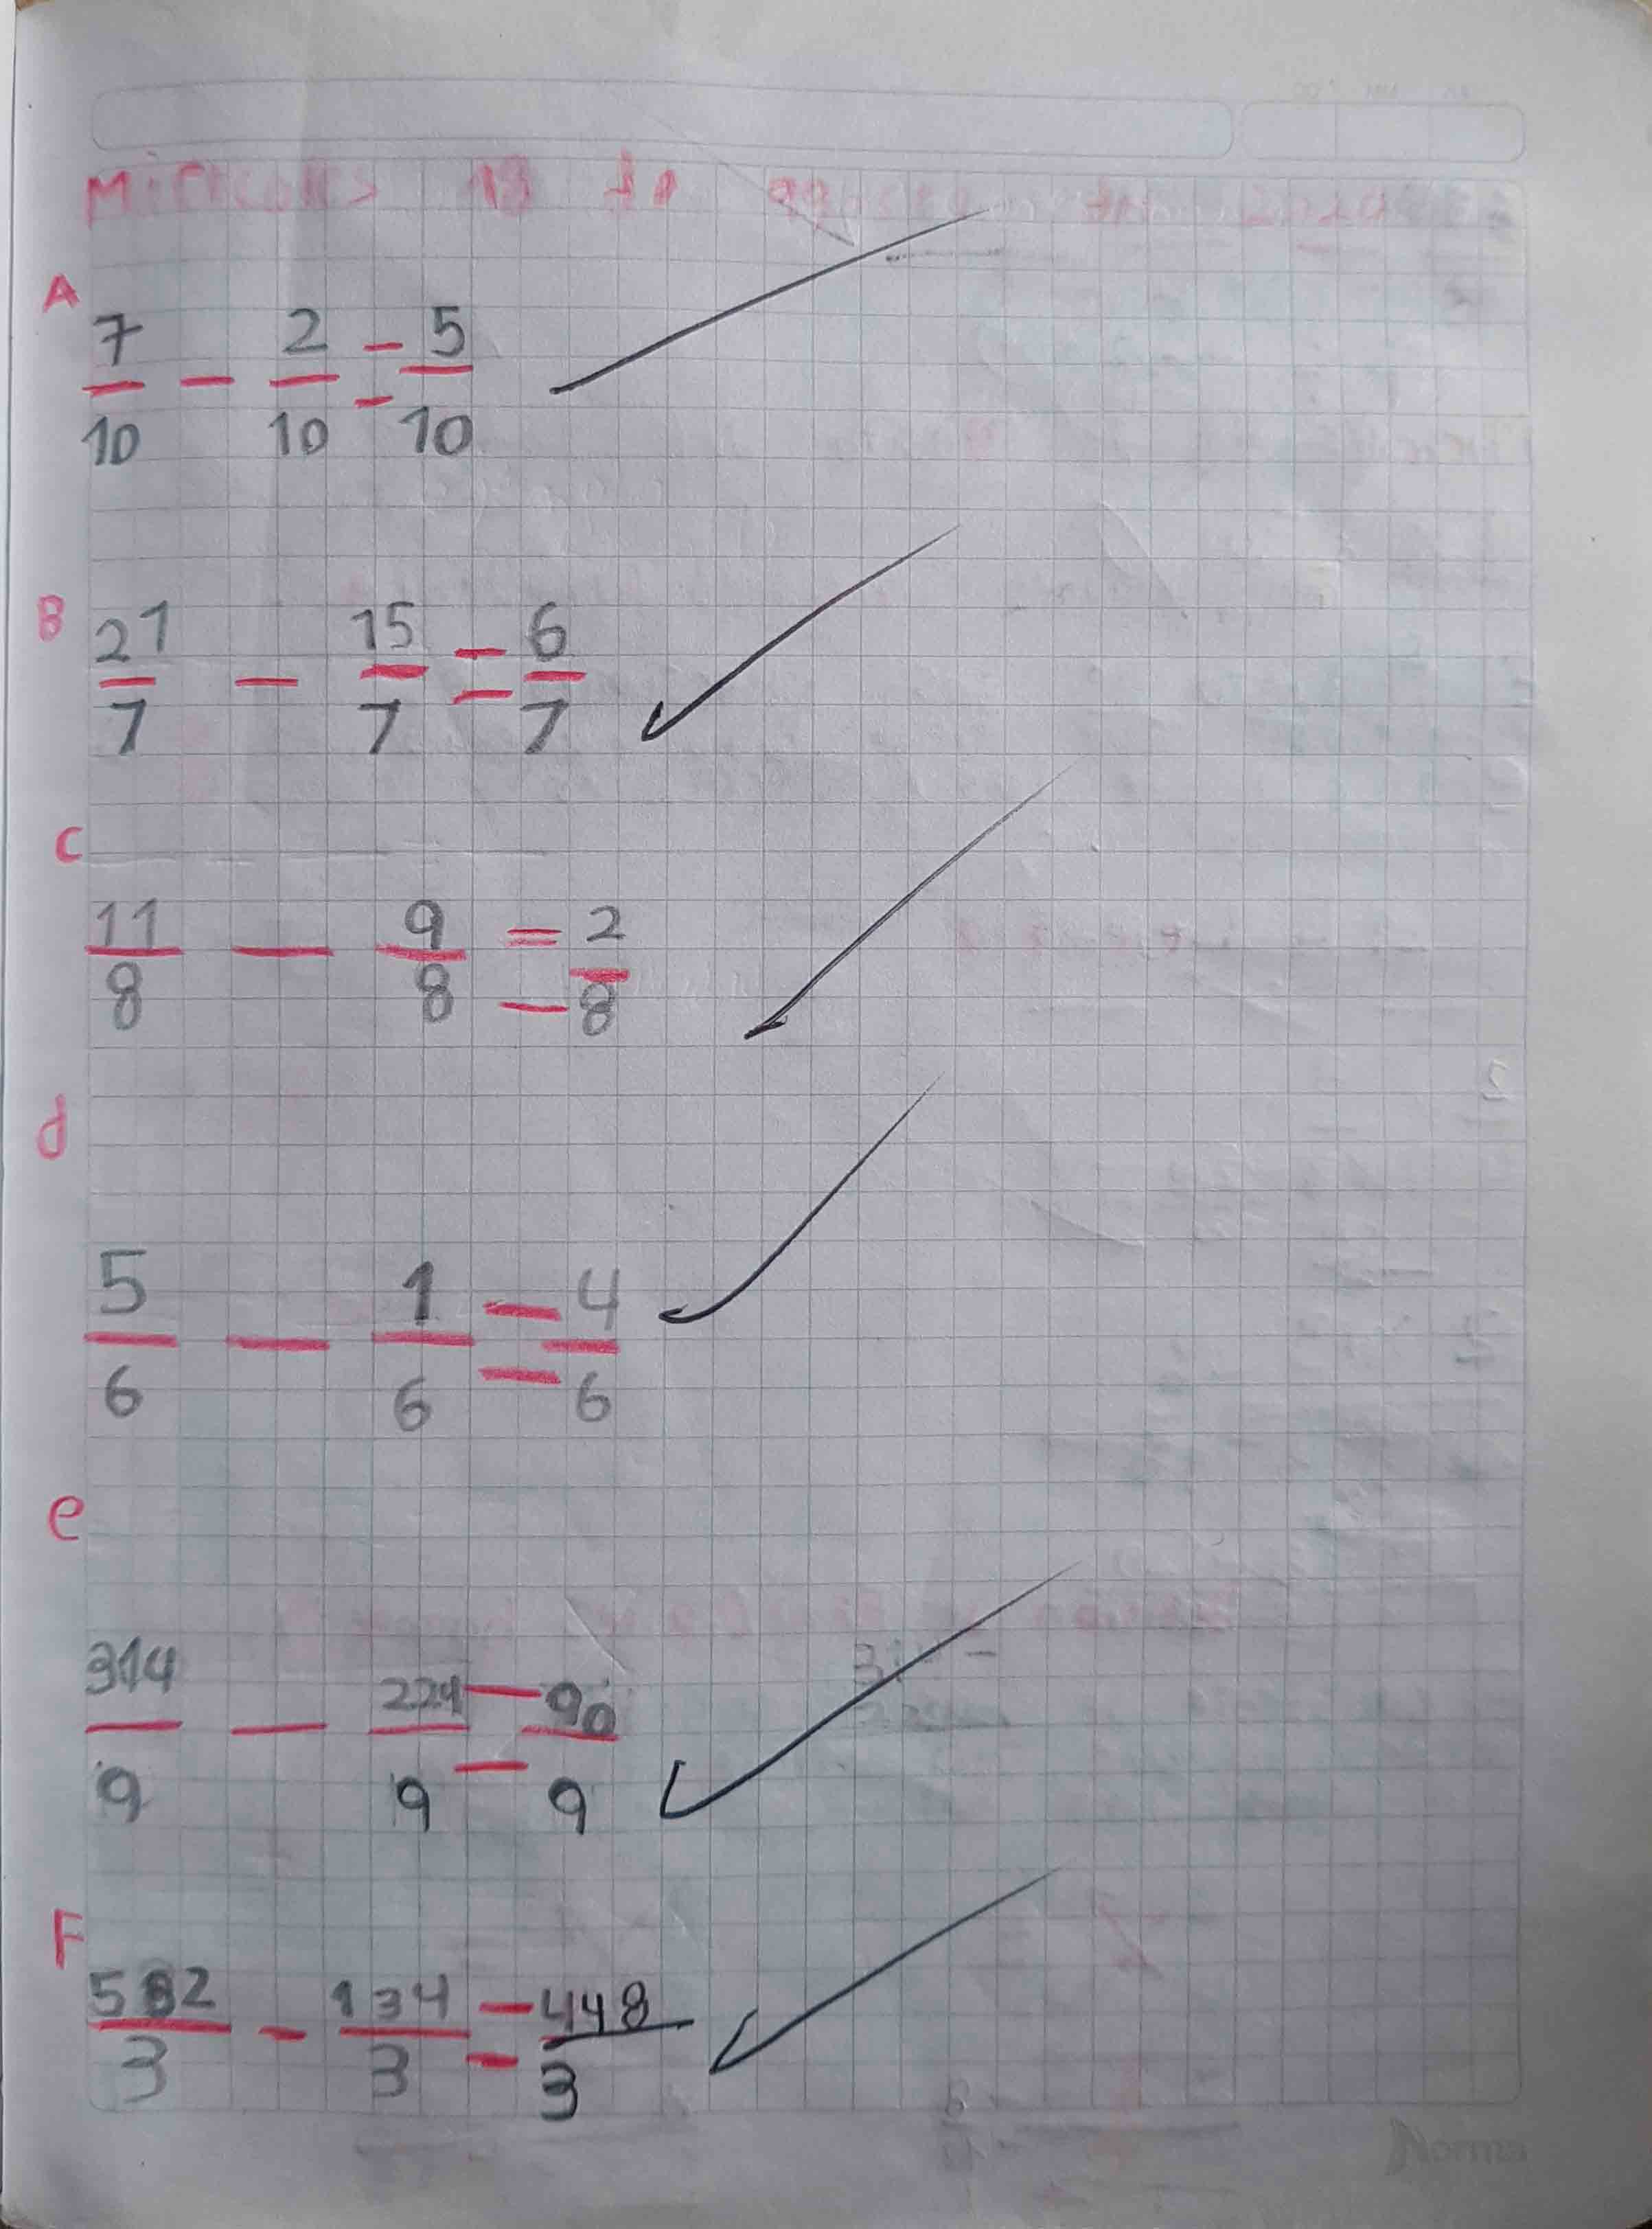 Miercoles 19 de
A
7/10 - 2/10 = 5/10
B
21/7 - 15/7 = 6/7
C
11/8 - 9/8 = 2/8
d
5/6 - 1/6 = 4/6
e
314/9 - 224/9 = 90/9
F
582/3 - 134/3 = 448/3
Norma